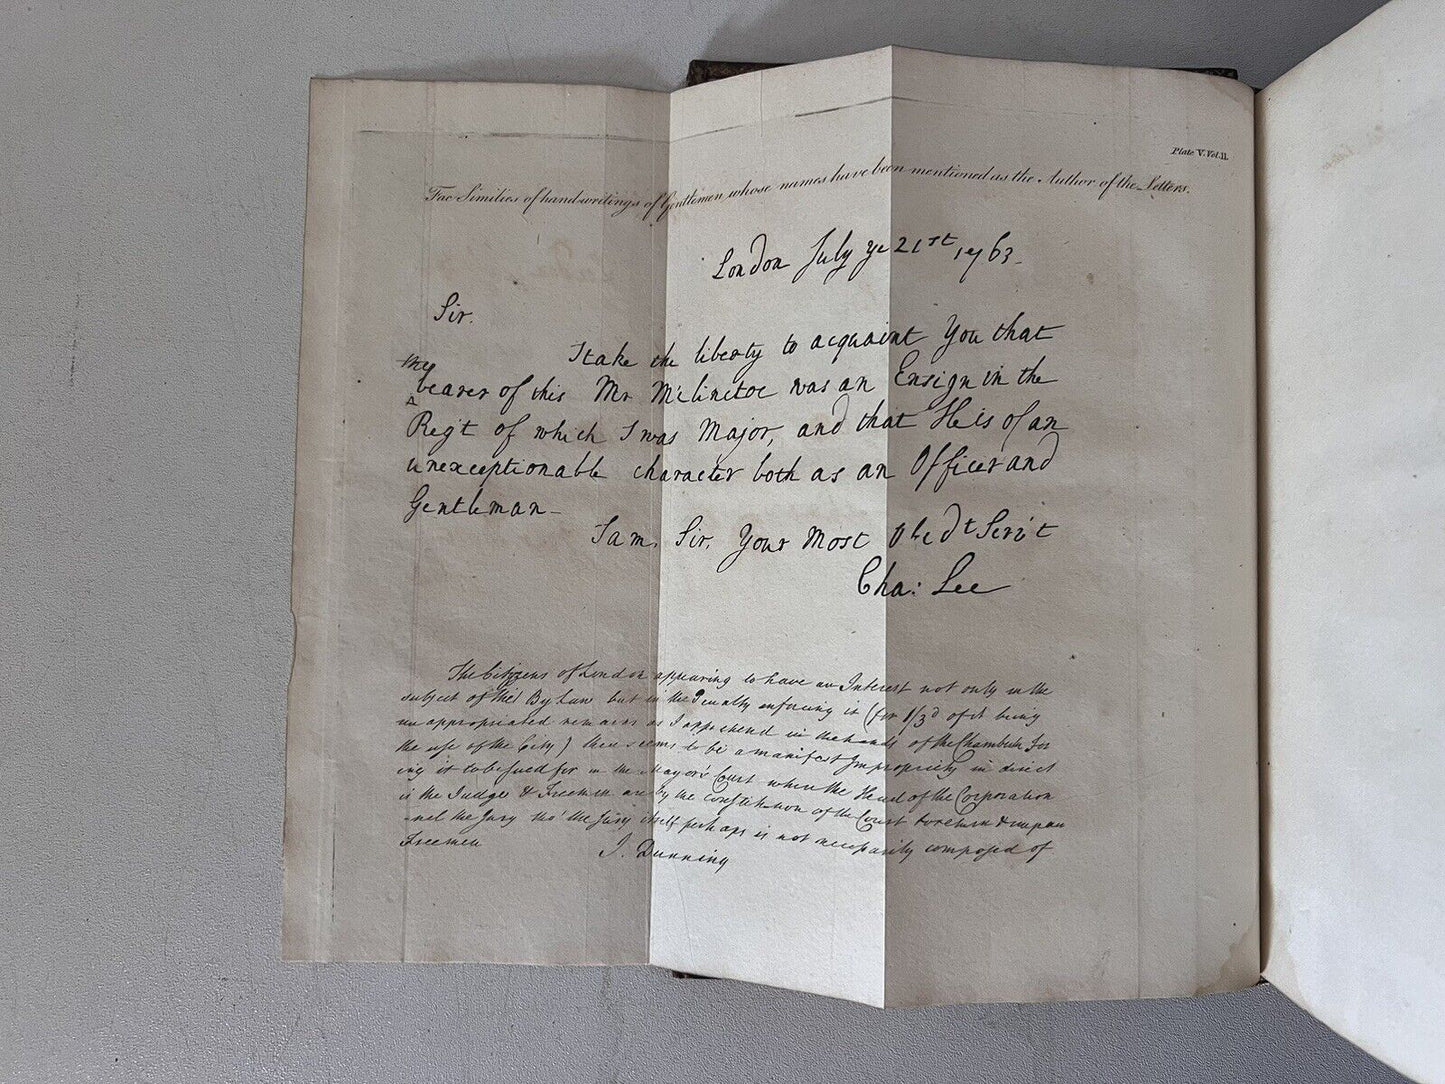 Plate V. Vol. II.
Fac Similies of handwritings of Gentlemen whose names have been mentioned as the Author of the Letters.
London July ye 21st, 1763.
Sir.
I take the liberty to acquaint You that
the
bearer of this Mr McClintoc was an Ensign in the
Reg't of which I was Major, and that He is of an
unexceptionable character both as an Officer and
Gentleman_
I am, Sir, Your Most Obedt Serv't
Cha: Lee
The Citizens of London appearing to have an Interest not only in the
subject of the By Law but in the Penalty enforcing it (for 1/3d of it being
unappropriated remains as I apprehend in the hands of the Chamberlain for
the use of the City) there seems to be a manifest Impropriety in direct
ing it to be sued for in the Mayor's Court where the Head of the Corporation
is the Judge & Freemen are by the constitution of the Court to return & impan
nel the Jury tho' the Jury itself perhaps is not necessarily composed of
Freemen
J. Dunning